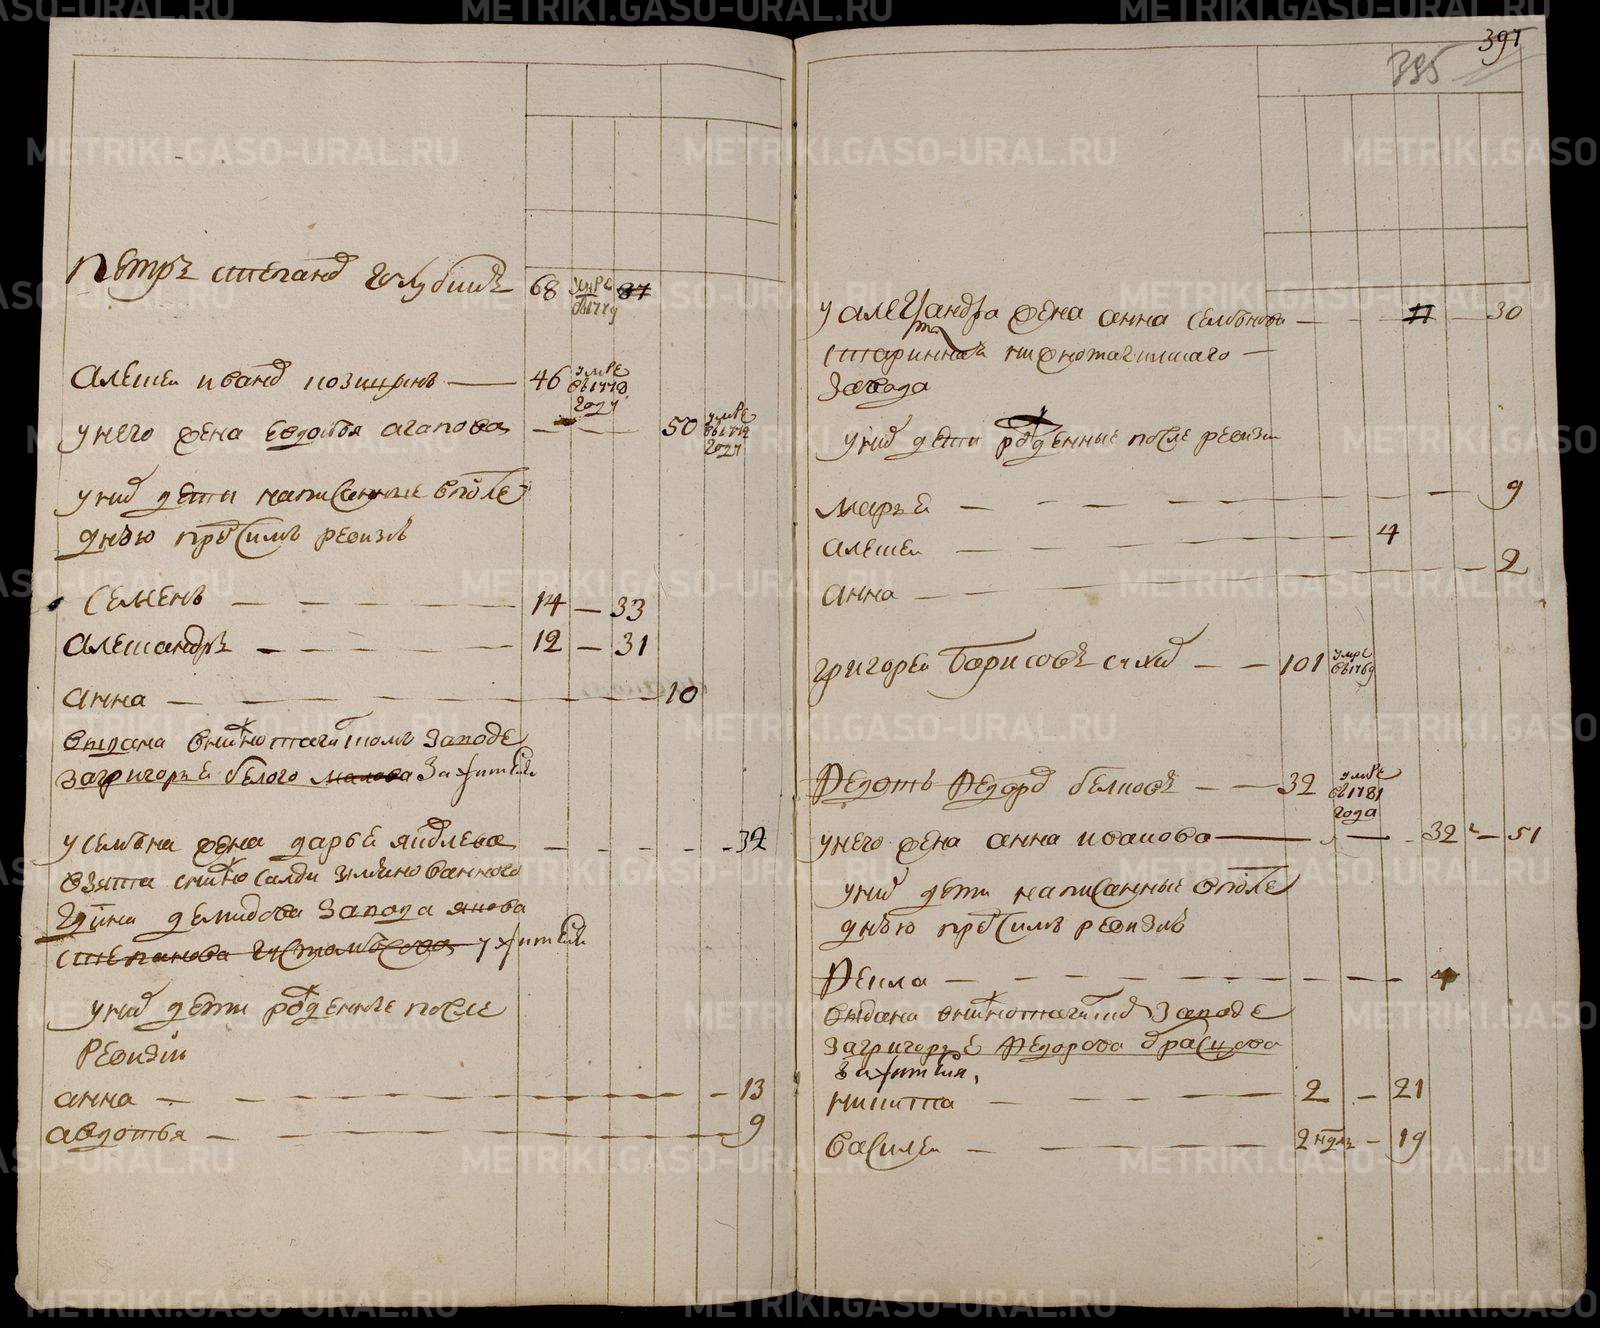 391
395
Петръ степановъ голубцовъ 68 умре въ 1779 87
Алексеи ивановъ 46 умре въ 1772 году
у него жена евдокея агапова — — 50 умре въ 1772 году
у нихъ дети написанные впосле
днюю пред симъ ревизию
Семенъ — — — — — 14 — 33
Александръ — — — — — 12 — 31
анна — — — — — — 10
выдана внижнотагилскомъ заводе
загригорья белого за жителя
у семена жена дарья яковлева — — — — 32
взята снижно салдинского
гдина демидова завода
степанова у жителя
у нихъ дети рожденные после
ревизии
анна — — — — — — — 13
авдотья — — — — — — — 9
у александра жена анна семенова — — 11 — 30
старинная нижнотагилскаго —
завода
у нихъ дети рожденные после ревизии
марья — — — — — — — 9
алексеи — — — — — 4
анна — — — — — — — 2
григореи борисовъ — — 101 умре въ 1769
Федотъ Федоровъ белковъ — — 32 умре въ 1781 года
у него жена анна иванова — — 32 — 51
у нихъ дети написанные впосле
днюю пред симъ ревизию
Фекла — — — — — — 4
выдана внижнотагилскомъ заводе
загригорья Федорова
за жителя
никита — — — — 2 — 21
василеи — — — 2 ндль — 19
METRIKI.GASO-URAL.RU